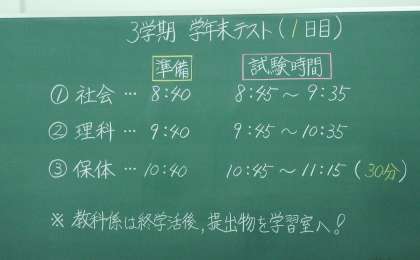 3学期 学年末テスト(1日目)
準備 試験時間
① 社会 … 8:40 8:45 〜 9:35
② 理科 … 9:40 9:45 〜 10:35
③ 保体 … 10:40 10:45 〜 11:15 (30分)
※ 教科係は終学活後、提出物を学習室へ!